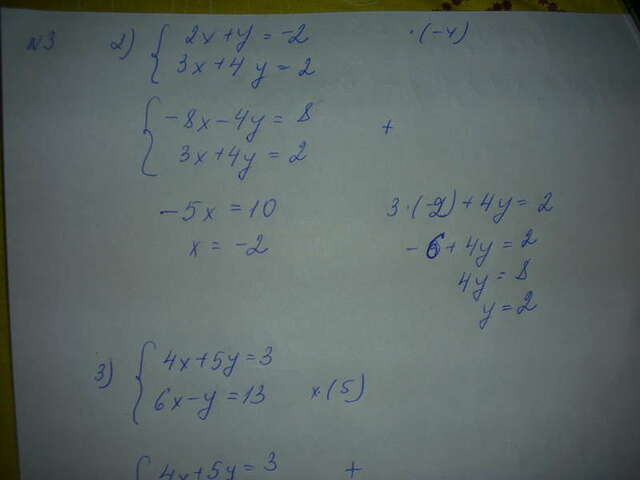 №3 2) { 2x+y=-2 ·(-4)
3x+4y=2
{ -8x-4y=8 +
3x+4y=2
-5x=10 3·(-2)+4y=2
x=-2 -6+4y=2
4y=8
y=2
3) { 4x+5y=3
6x-y=13 x·(5)
{ 4x+5y=3 +